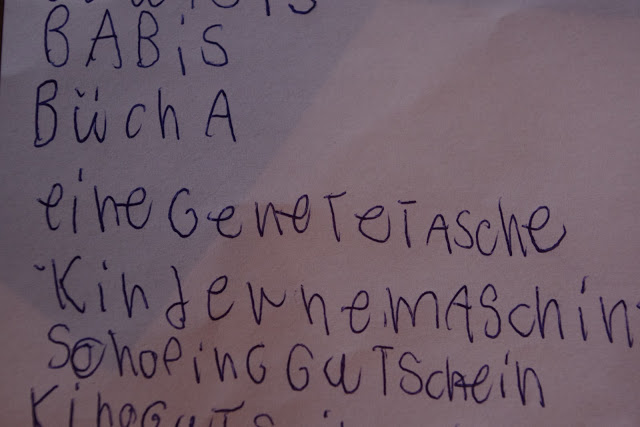 BABiS
BüchA
eine GeneTeTAsche
KindernemAschin
SchopinG GuTSchein
KinoGuTS